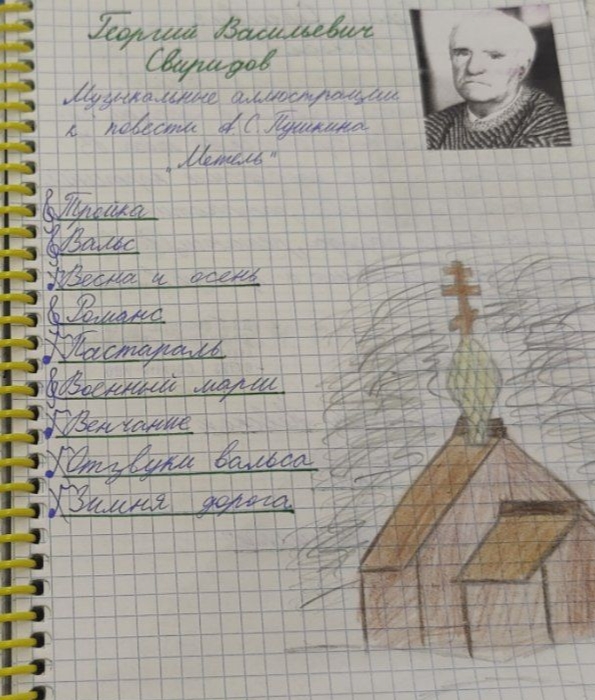 Георгий Васильевич
Свиридов
Музыкальные иллюстрации
к повести А.С.Пушкина
„Метель"
Тройка
Вальс
Весна и осень
Романс
Пастараль
Военный марш
Венчание
Отзвуки вальса
Зимня дорога